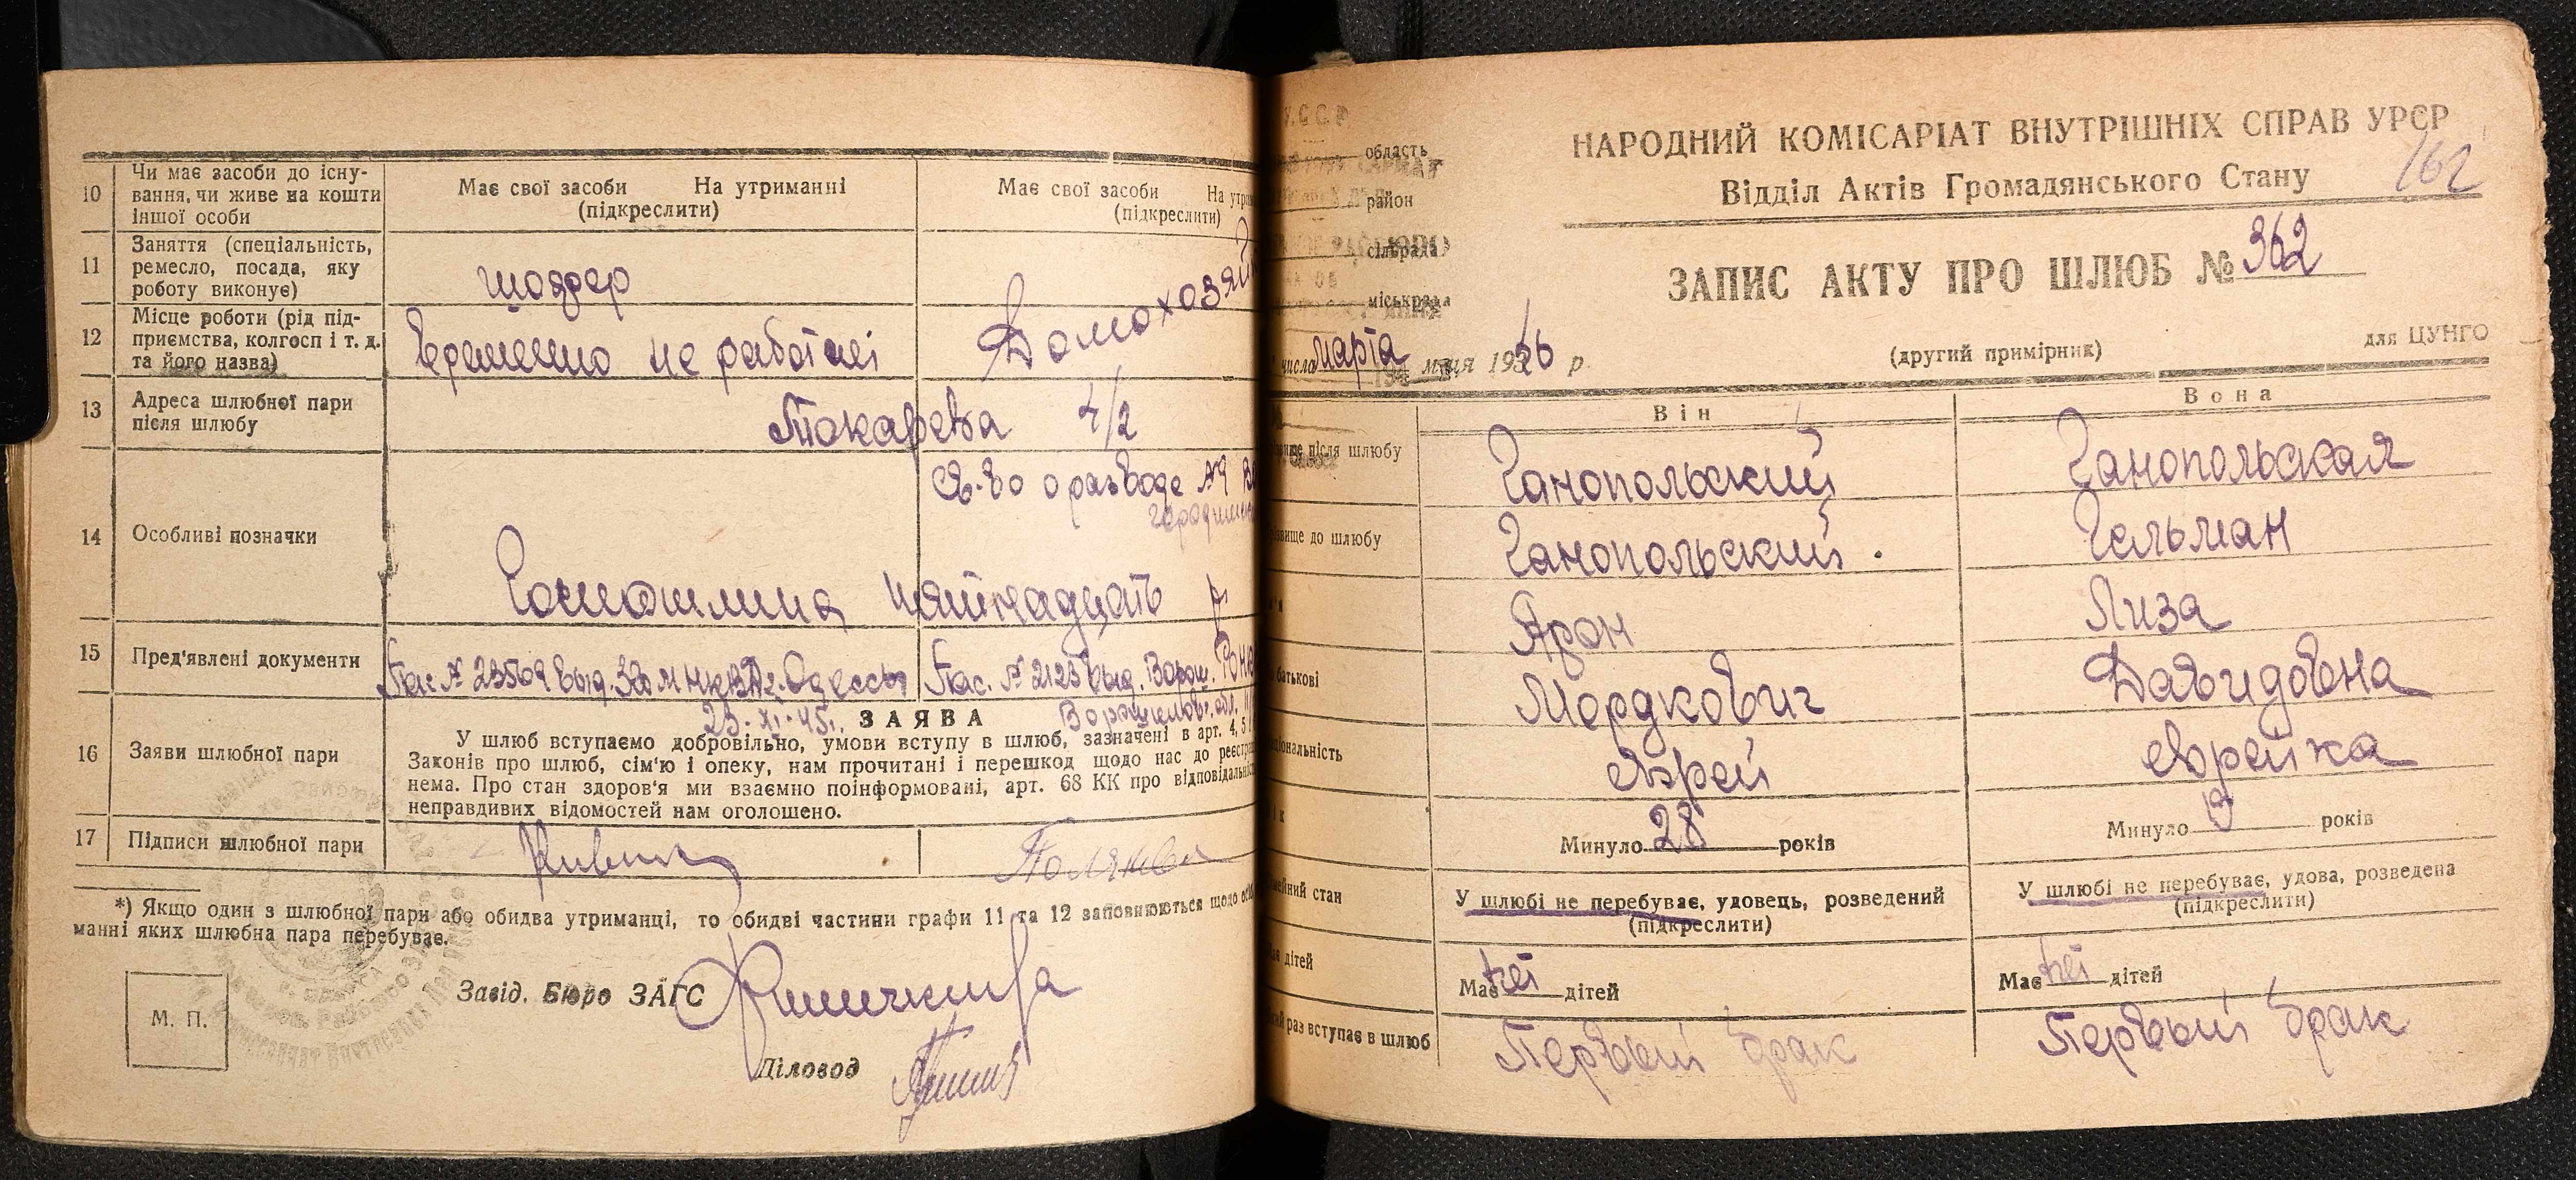 10
Чи має засоби до існу-
вання, чи живе на кошти
іншої особи
Має свої засоби На утриманні
(підкреслити)
Має свої засоби На утрим
(підкреслити)
11
Заняття (спеціальність,
ремесло, посада, яку
роботу виконує)
шоффер
Домохозяй
12
Місце роботи (рід під-
приємства, колгосп і т. д.
та його назва)
временно не работает
13
Адреса шлюбної пари
після шлюбу
Токарева 4/2
14
Особливі позначки
Св-во о разводе №9
Госпошлина пятнадцать р
15
Пред'явлені документи
Пас № 23569 выд. 3 г. Одессы
23.XI.45г.
Пас. № 2123 выд. Ворош.
Ворошиловг. обл.
16
Заяви шлюбної пари
ЗАЯВА
У шлюб вступаємо добровільно, умови вступу в шлюб, зазначені в арт. 4, 5 і
Законів про шлюб, сім'ю і опеку, нам прочитані і перешкод щодо нас до реєстрац
нема. Про стан здоров'я ми взаємно поінформовані, арт. 68 КК про відповідальніс
неправдивих відомостей нам оголошено.
17
Підписи шлюбної пари
*) Якщо один з шлюбної пари або обидва утриманці, то обидві частини графи 11 та 12 заповнюються щодо осіб
манні яких шлюбна пара перебуває.
М. П.
Завід. Бюро ЗАГС
Діловод
НАРОДНИЙ КОМІСАРІАТ ВНУТРІШНІХ СПРАВ УРСР
Відділ Актів Громадянського Стану
162
ЗАПИС АКТУ ПРО ШЛЮБ № 362
область
район
сільрада
міськрада
числа марта м-ця 1946 р.
(другий примірник)
для ЦУНГО
Він
Вона
звище після шлюбу
Ганопольский
Ганопольская
звище до шлюбу
Ганопольский
Гельман
м'я
Арон
Лиза
батькові
Мордкович
Давидовна
ціональність
еврей
еврейка
ік
Минуло 28 років
Минуло років
мейний стан
У шлюбі не перебуває, удовець, розведений
(підкреслити)
У шлюбі не перебуває, удова, розведена
(підкреслити)
ає дітей
Має нет дітей
Має нет дітей
кий раз вступає в шлюб
Первый брак
Первый брак